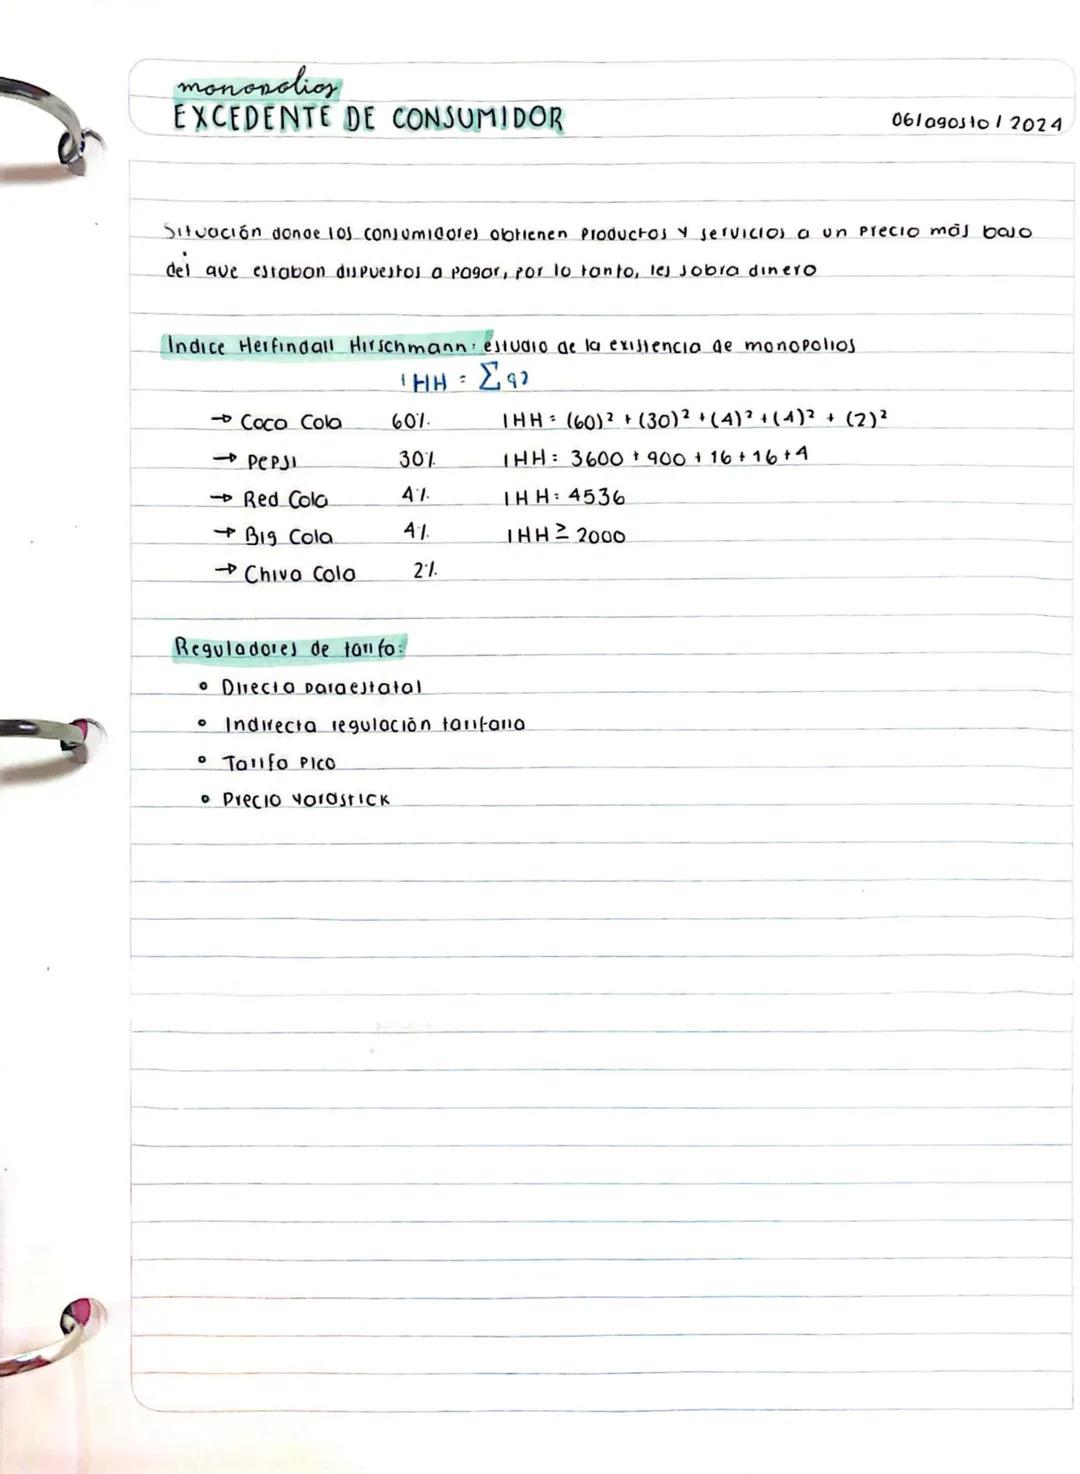 monopolios
EXCEDENTE DE CONSUMIDOR
06/agosto/2024
Situación donde los consumidores obtienen productos y servicios a un precio más bajo
del que estaban dispuestos a pagar, por lo tanto, les sobra dinero
Indice Herfindall Hirschmann: estudio de la existencia de monopolios
IHH = ∑q²
→ Coca Cola 60% IHH = (60)² + (30)² + (4)² + (4)² + (2)²
→ Pepsi 30% IHH = 3600 + 900 + 16 + 16 + 4
→ Red Cola 4% IHH = 4536
→ Big Cola 4% IHH ≥ 2000
→ Chiva Cola 2%
Reguladores de tarifa:
• Directa paraestatal
• Indirecta regulación tarifaria
• Tarifa pico
• Precio yardstick